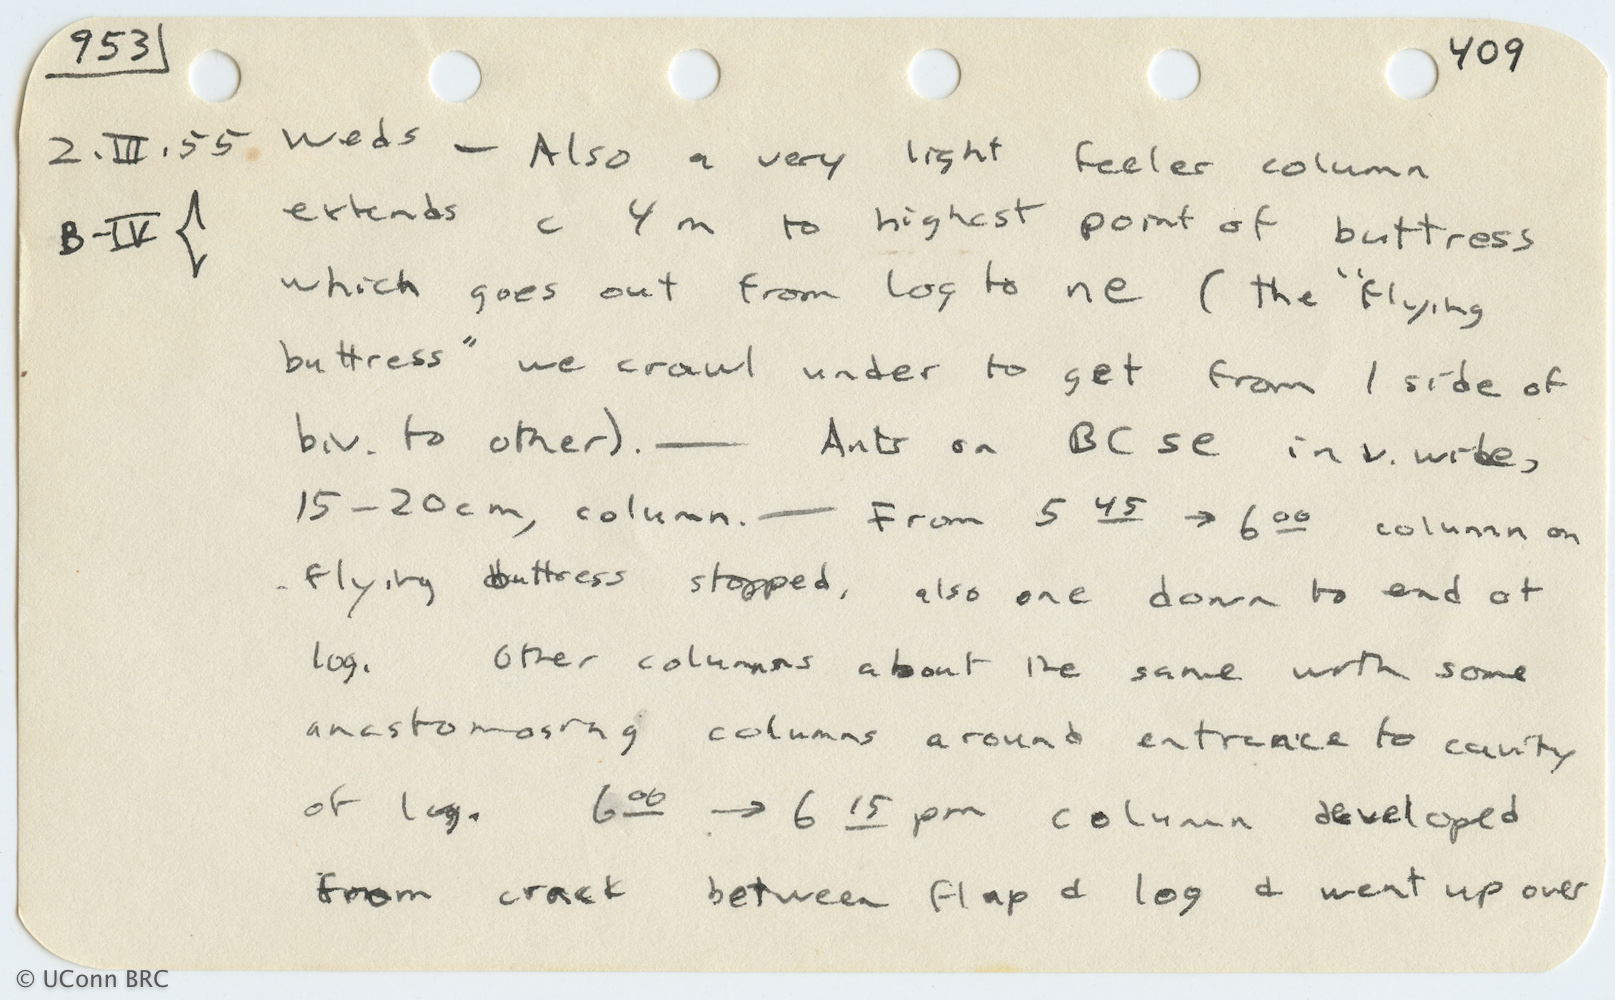 953 409
2.III.55 Weds — Also a very light feeler column
B-IV { extends c 4 m to highest point of buttress
which goes out from log to ne (the "flying
buttress" we crawl under to get from 1 side of
biv. to other). — Ants on BC se in v. wide,
15-20cm, column. — From 5 45 → 6 00 column on
flying buttress stopped, also one down to end of
log. Other columns about the same with some
anastomosing columns around entrance to cavity
of log. 6 00 → 6 15 pm column developed
from crack between flap & log & went up over
© UConn BRC